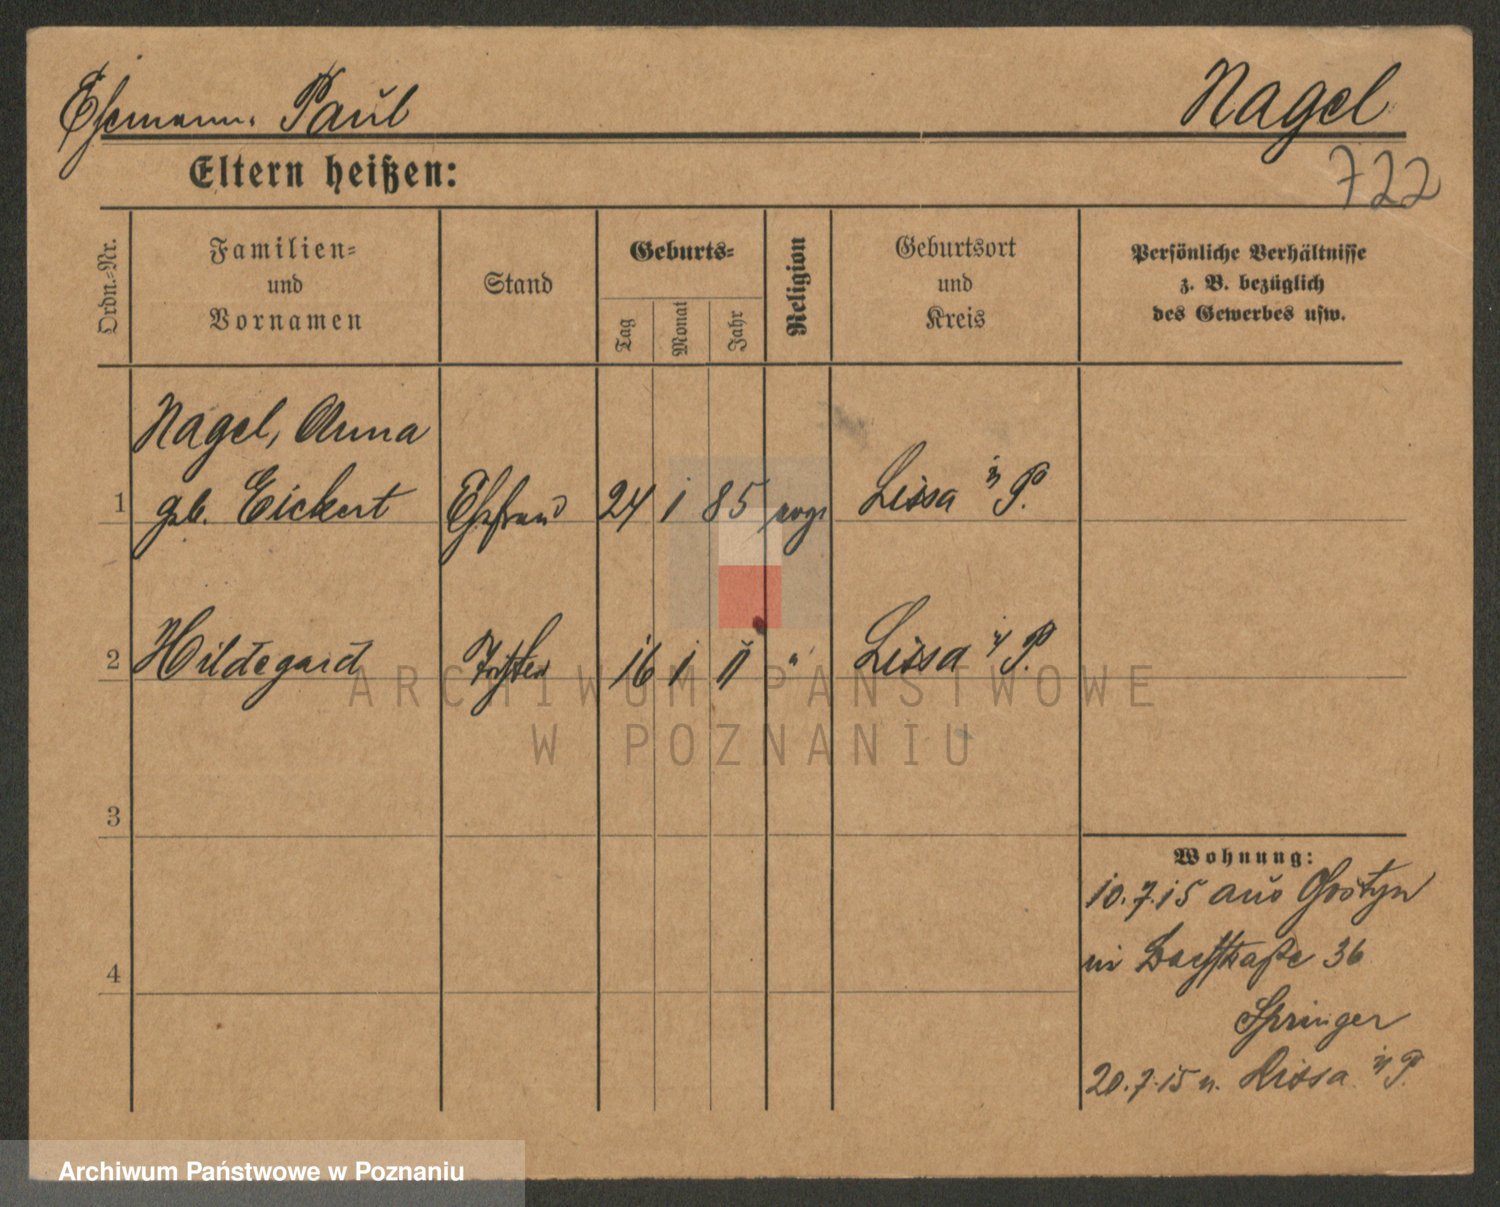 Ehemann: Paul Nagel
Eltern heißen:
722
Ordn.=Nr.
Familien=
und
Vornamen
Stand
Geburts=
Tag
Monat
Jahr
Religion
Geburtsort
und
Kreis
Persönliche Verhältnisse
z. B. bezüglich
des Gewerbes usw.
Nagel, Anna
1 geb. Eickert Ehefrau 24 1 85 evgl Lissa i/ P.
2 Hildegard Tochter 16 1 11 " Lissa i/ P.
3
4
Wohnung:
10.7.15 aus Gostyn
36
Springer
20.7.15 n. Lissa i/P.
ARCHIWUM PAŃSTWOWE
W POZNANIU
Archiwum Państwowe w Poznaniu